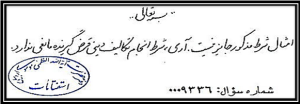 بسمه تعالی
امثال شرط مذکور جایز نیست. آری، شرط انجام تکالیف دینی قرض گیرنده مانعی ندارد.
استفتائات
شماره سؤال: ۰۰۰۹۳۳۶